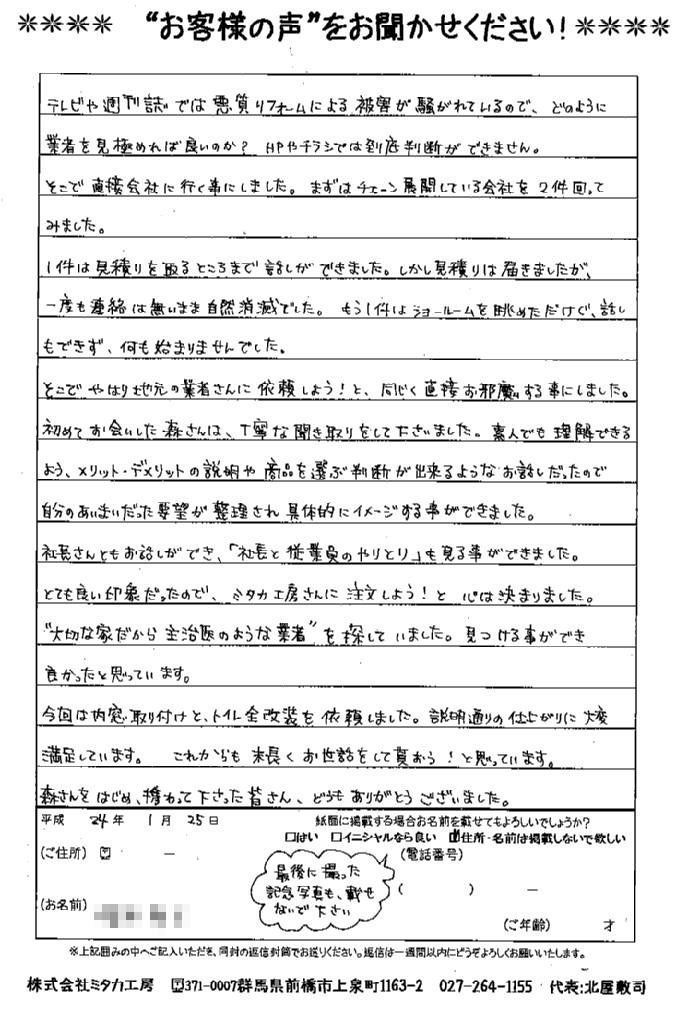 ✳✳✳✳ “お客様の声”をお聞かせください！✳✳✳✳
テレビや週刊誌では悪質リフォームによる被害が騒がれているので、どのように
業者を見極めれば良いのか？ HPやチラシでは到底判断ができません。
そこで直接会社に行く事にしました。まずはチェーン展開している会社を2件回って
みました。
1件は見積りを取るところまで話しができました。しかし見積りは届きましたが、
一度も連絡は無いまま自然消滅でした。もう1件はショールームを眺めただけで、話し
もできず、何も始まりませんでした。
そこでやはり地元の業者さんに依頼しよう！と、同じく直接お邪魔する事にしました。
初めてお会いした森さんは、丁寧な聞き取りをして下さいました。素人でも理解できる
よう、メリット・デメリットの説明や商品を選ぶ判断が出来るようなお話しだったので
自分のあいまいだった要望が整理され具体的にイメージする事ができました。
社長さんともお話しができ、「社長と従業員のやりとり」も見る事ができました。
とても良い印象だったので、ミタカ工房さんに注文しよう！と 心は決まりました。
“大切な家だから主治医のような業者”を探していました。見つける事ができ
良かったと思っています。
今回は内窓取り付けと、トイレ全改装を依頼しました。説明通りの仕上がりに大変
満足しています。 これからも末長くお世話をして貰おう！と思っています。
森さんをはじめ、携わって下さった皆さん、どうもありがとうございました。
平成 24年 1月 25日 紙面に掲載する場合お名前を載せてもよろしいでしょうか？
□はい □イニシャルなら良い ☑住所・名前は掲載しないで欲しい
(ご住所) 〒 － (電話番号)
最後に撮った
記念写真も、載せ
ないで下さい
( ) －
(お名前)
(ご年齢) 才
※上記囲みの中へご記入いただき、同封の返信封筒でお送りください。返信は一週間以内にどうぞよろしくお願いいたします。
株式会社ミタカ工房 〒371-0007群馬県前橋市上泉町1163-2 027-264-1155 代表:北屋敷司